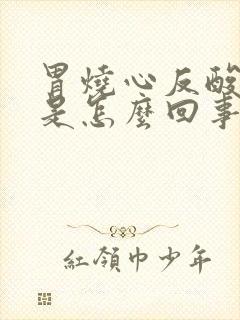 胃燒心反酸
是怎麼回事
紅領巾少年